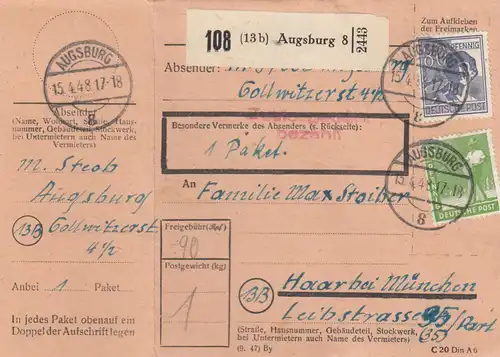 Zum Aufkleben
der Freimarken
108 (13b) Augsburg 8 2443
AUGSBURG
15.4.48.17-18
8
Absender:
Gollwitzerst 4/2
PFENNIG
DEUTSCHE POST
AUGSBURG
15.4.48.17-18
8
Absender
(Name, Wohnort, Straße, Haus-
nummer, Gebäudeteil, Stockwerk,
bei Untermietern auch Name des
Vermieters)
M. Steob
Augsburg
13B Gollwitzerst
4/2
Besondere Vermerke des Absenders (s. Rückseite):
bezahlt
1 Paket.
An Familie Max Stoiber
AUGSBURG
15.4.48.17-18
8
DEUTSCHE POST
Freigebühr
90
Postgewicht (kg)
1
Anbei 1 Paket
13B Haar bei München
Leibstrasse 25/Part
In jedes Paket obenauf ein
Doppel der Aufschrift legen
(Straße, Hausnummer, Gebäudeteil, Stockwerk,
bei Untermietern auch Name des Vermieters)
(9. 47) By
C 20 Din A 6